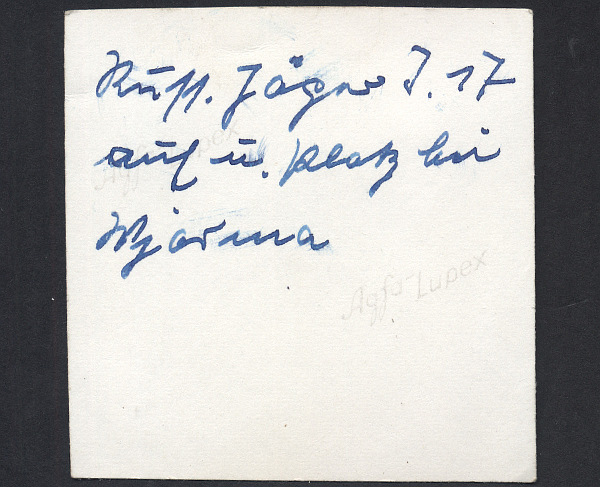 Russ. Jäger J. 17
auf u. Platz bei
Wjasma
Agfa Lupex
Agfa Lupex